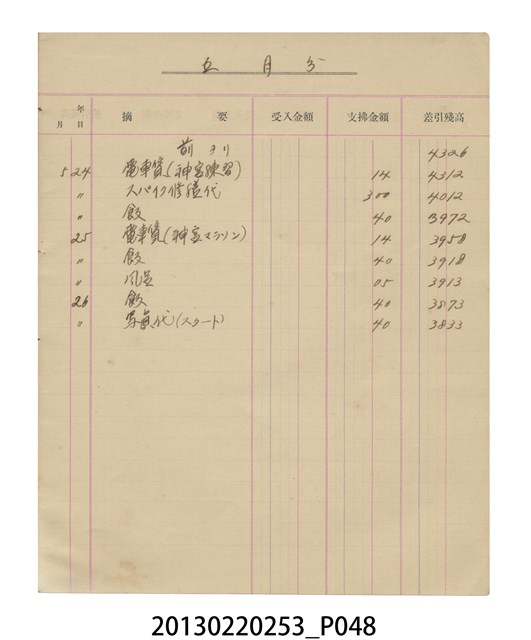 五月分
年
月 日 摘要 受入金額 支拂金額 差引殘高
前ヨリ 4326
5 24 電車賃(神宮練習) 14 4312
〃 スパイク修繕代 300 4012
〃 飯 40 3972
25 電車賃(神宮マラソン) 14 3958
〃 飯 40 3918
〃 風呂 05 3913
26 飯 40 3873
〃 写眞代(スタート) 40 3833
20130220253_P048